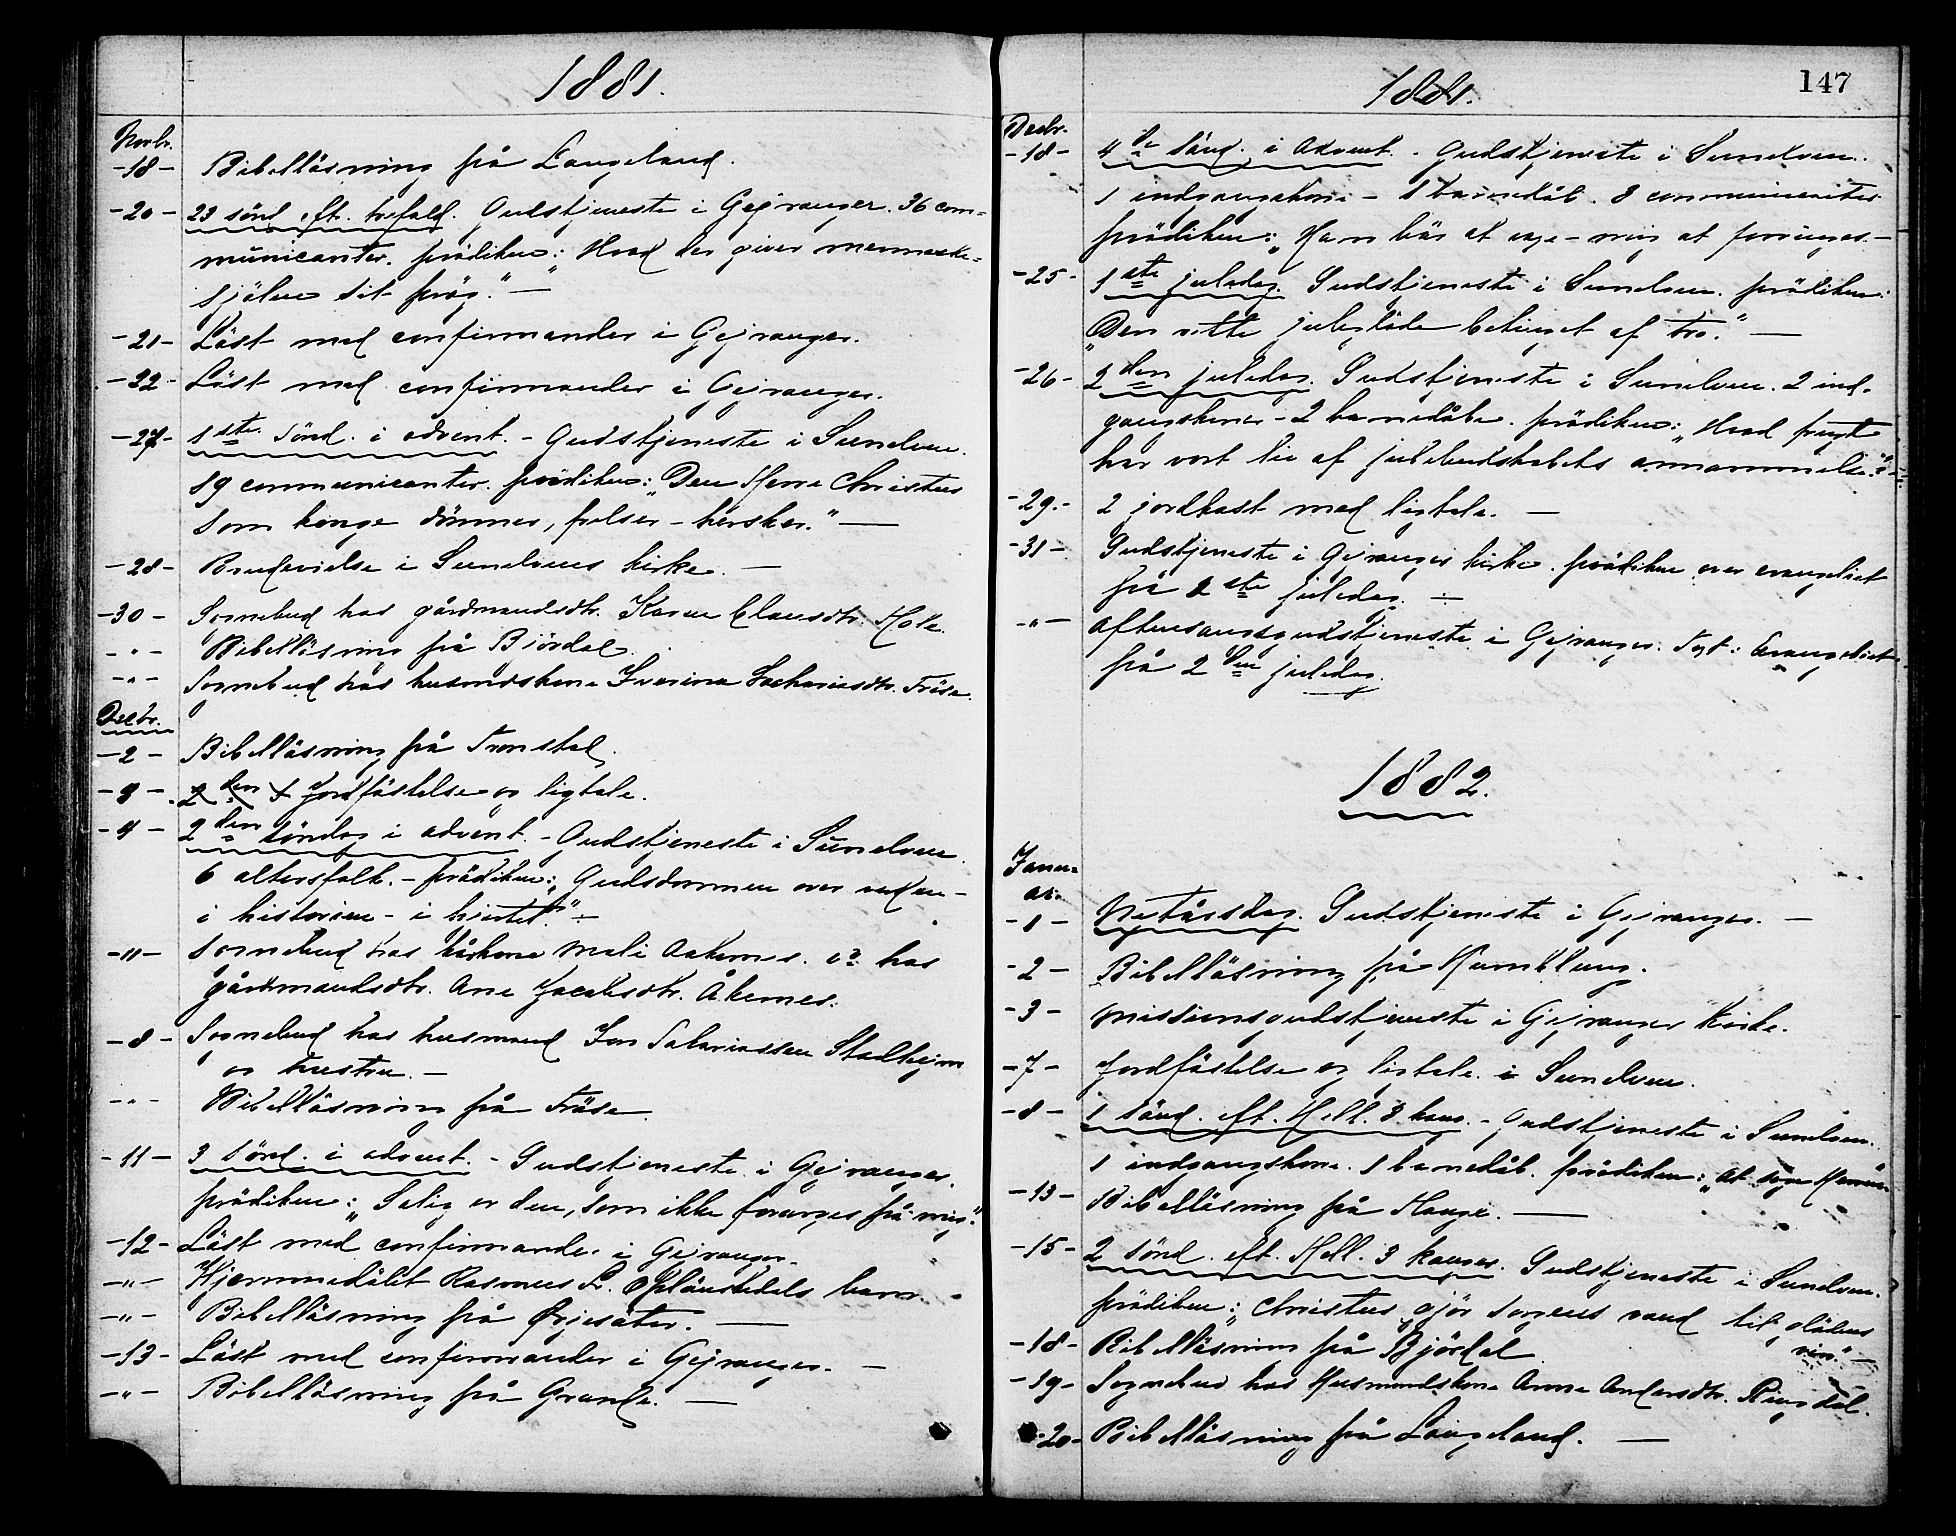 1881.
Novbr.
-18- Bibelläsning på Langeland.
-20- 23 sönd. eft. trefold. Gudstjeneste i Gejranger. 36 com=
municanter. prädiken: "Hvad der giver menneske=
själen sit präg." -
-21- Läst med confirmander i Gejranger.
-22- Läst med confirmander i Gejranger.
-27- 1ste sönd. i advent. - Gudstjeneste i Sunelven.
19 communicanter. prädiken: "Den Herre Christus
som konge dömmer, frelser - hersker." -
-28- Brudevielse i Sunelvens kirke. -
-30- Sognebud hos gårdmandsdtr. Karen Clausdtr. Hole.
-"- Bibelläsning på Björdal.
-"- Sognebud hos husmdskone Severine Zachariasdtr. Fröse.
Decbr.
-2- Bibelläsning på Tronstad.
-3- 2den Jordfästelse og ligtale.
-4- 2den söndag i advent. - Gudstjeneste i Sunelven.
6 altersfolk. - prädiken: "Gudsdommen over verden -
i historien - i hjertet." -
-"- Sognebud hos kårkone Mali Aakernes. og hos
gårdmandsdtr. Ane Jacobsdtr. Åkernes.
-8- Sognebud hos husmand Jon Zakariassen Stadhejm
og hustru. -
-"- Bibelläsning på Fröse.
-11- 3 sönd. i advent. - Gudstjeneste i Gejranger.
prädiken: "Salig er den, som ikke forarges på mig."
-12- Läst med confirmander i Gejranger.
-"- Hjemmedåbt Rasmus Fr. barn.
-"- Bibelläsning på Örjesäter. -
-13- Läst med confirmander i Gejranger. -
-"- Bibelläsning på Grande. -
1881.
147
Decbr.
-18- 4de sönd. i Advent. - Gudstjeneste i Sunelven.
1 indgangskone - 1 barnedåb. 8 communicanter
prädiken: "Ham bör at voxe - mig at forringes. -
-25- 1ste juledag. Gudstjeneste i Sunelven. prädiken:
"Den rette juleglæde betinget af tro." -
-26- 2den juledag. Gudstjeneste i Sunelven. 2 ind=
gangskoner - 2 barnedåbe. prädiken: "Hvad frugt
har vort liv af julebudskabets annammelse?"
-29- 2 jordkast med ligtale. -
-31- Gudstjeneste i Gejranger kirke. prädiken over evangeliet
på 1ste juledag. -
-"- aftensangsgudstjeneste i Gejranger. Text: Evangeliet
på 2den juledag.
1882.
Janu=
ar.
-1- Nytårsdag. Gudstjeneste i Gejranger. -
-2- Bibelläsning på Humblung.
-3- Missionsgudstjeneste i Gejranger Kirke.
-7- Jordfästelse og ligtale i Sunelven.
-8- 1 sönd. eft. Hell. 3 kong. - Gudstjeneste i Sunelven.
1 indgangskone. 1 barnedåb. prädiken: "At søge Herren.
-13- Bibelläsning på Hauge. -
-15- 2 sönd. eft. Hell. 3 konger. Gudstjeneste i Sunelven.
prädiken: "Christus gjör sorgens vand til glädens
vin." -
-18- Bibelläsning på Björdal
-19- Sognebud hos Husmandskone Anne Andersdtr. Ringdal.
-20- Bibelläsning på Langeland. -